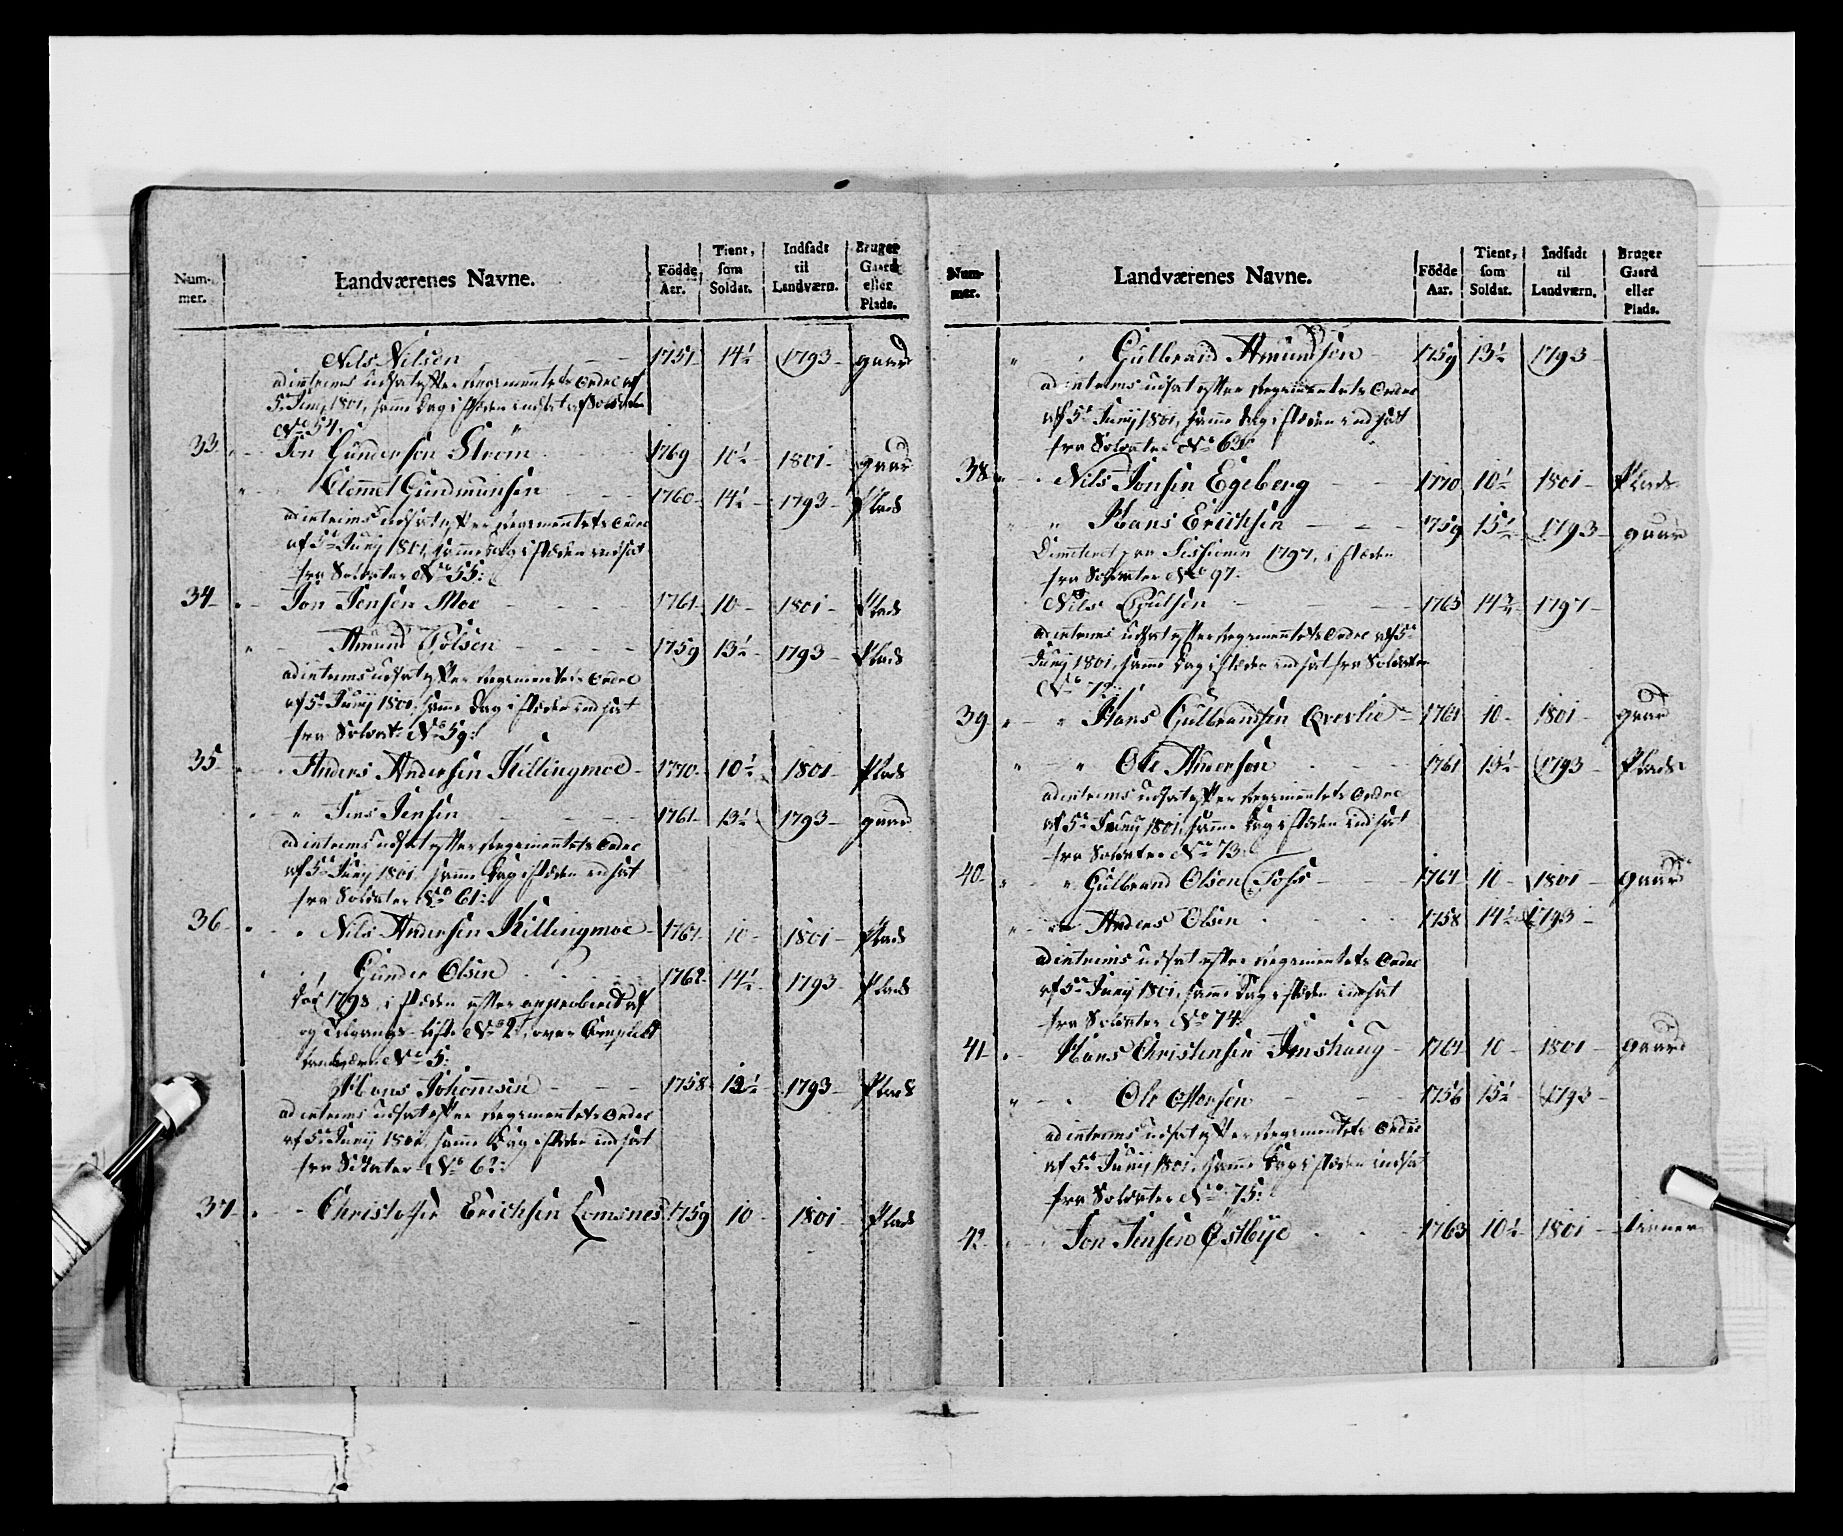 Num-
mer.
Landværenes Navne.
Födde
Aar.
Tient,
som
Soldat.
Indsadt
til
Landværn.
Bruger
Gaard
eller
Plads.
Nils Nilsen 1757 14½ 1793 gaard
ad interims udsat efter Regimentets Ordre af
5te Junij 1801, samme Dag i stæden indsat af Soldater
No 54.
33 Jon Gundersen Strøm 1769 10½ 1801 gaard
Clemmet Gundmunsen 1760 14½ 1793 Plads
ad interims udsat efter Regimentets Ordre
af 5te Junij 1801, samme Dag i stæden indsat
fra Soldater No 55:
34 Jon Jensen Moe 1761 10 1801 Plads
Amund Polsen 1759 13½ 1793 Plads
ad interims udsat efter Regimentets Ordre
af 5te Junij 1801, samme Dag i stæden indsat
fra Soldat: No 59:
35 Anders Andersen Killingmoe 1770 10½ 1801 Plads
Jens Jensen 1761 13½ 1793 gaard
ad interims udsat efter Regimentets Ordre
af 5te Junij 1801, samme Dag i stæden indsat
fra Soldater No 61:
36 Nils Andersen Killingmoe 1761 10 1801 Plads
Gunder Olsen 1762 14½ 1793 Plads
1798, i stæden efter approberet Af
og Tilgangs-Liste No 2, over Complet
Landværn No 5:
Hans Johannsen 1758 12½ 1793 Plads
ad interims udsat efter Regimentets Ordre
af 5te Junij 1801, samme Dag i stæden indsat
fra Soldater No 62:
37 Christopher Erichsen Lomsnes 1759 10 1801 Plads
Num-
mer.
Landværenes Navne.
Födde
Aar.
Tient,
som
Soldat.
Indsadt
til
Landværn.
Bruger
Gaard
eller
Plads.
Gulbrand Amundsen 1759 13½ 1793
ad interims udsat efter Regimentets Ordre
af 5te Junij 1801, samme Dag i stæden indsat
fra Soldater No
38 Nils Jonsen Egeberg 1770 10½ 1801 Plads
Hans Erichsen 1759 15½ 1793 gaard
Dimitteret paa Sessionen 1797, i stæden
fra Soldater No 97.
Nils Poulsen 1763 14¾ 1797
ad interims udsat efter Regimentets Ordre af 5te
Junij 1801, samme Dag i stæden indsat fra Soldater
No 72:
39 Hans Gulbrandsen Qverlie 1761 10 1801 gaard
Ole Amersen 1761 13½ 1793 Plads
ad interims udsat efter Regimentets Ordre
af 5te Junij 1801, samme Dag i stæden indsat
fra Soldater No 73:
40 Gulbrand Olsen Foss 1761 10 1801 gaard
Anders Olsen 1758 14½ 1793
ad interims udsat efter Regimentets Ordre
af 5te Junij 1801, samme Dag i stæden indsat
fra Soldater No 74.
41 Hans Christensen Imshaug 1761 10 1801 gaard
Ole Ottersen 1756 15½ 1793
ad interims udsat efter Regimentets Ordre
af 5te Junij 1801, samme Dag i stæden indsat
fra Soldater No 75:
42 Jon Jensen Østbye 1763 10½ 1801 tienner